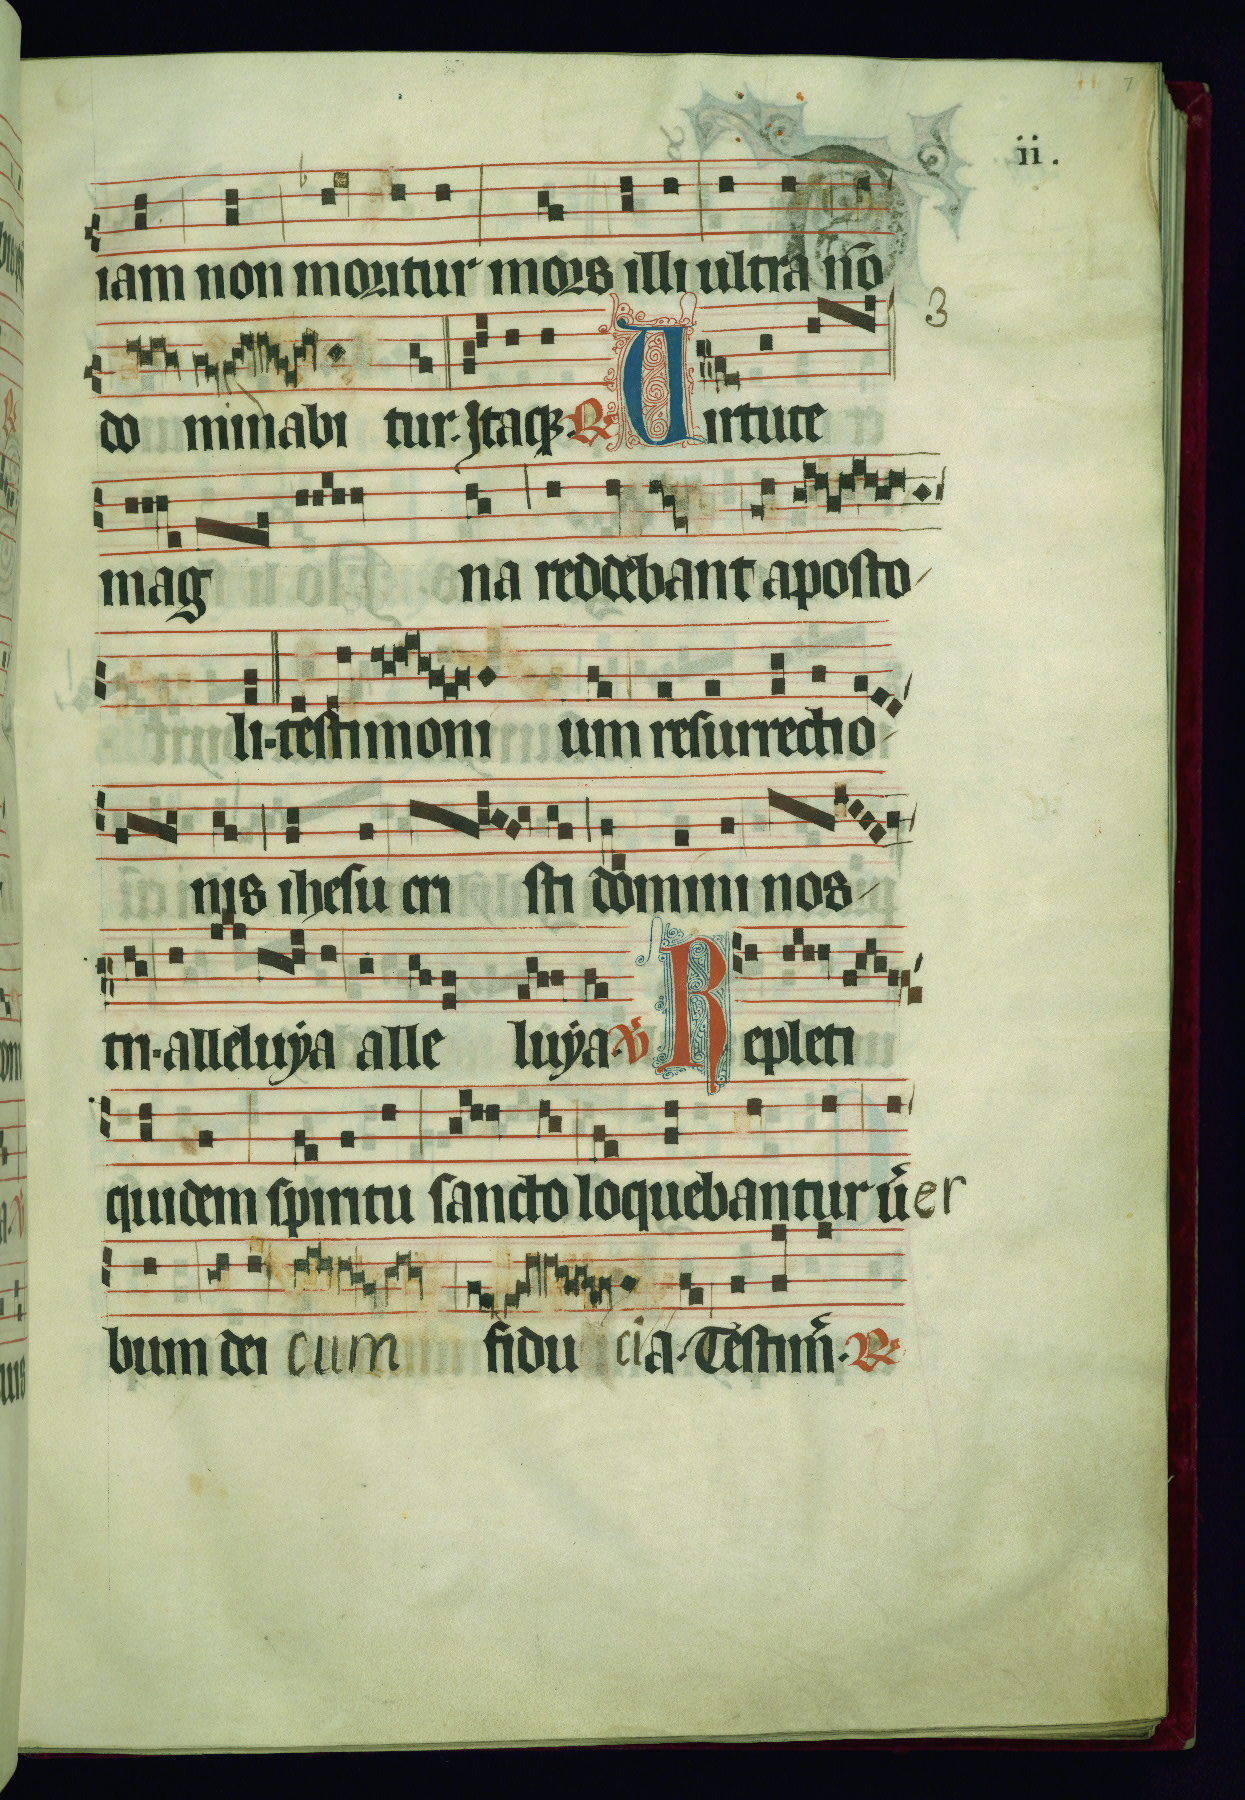 7
ii.
iam non moritur mors illi ultra nō
3
do minabi tur. Itaqꝫ. R Uirtute
mag na reddebant aposto/
li. testimoni um resurrectio/
nis ihesu cri sti domini nos/
tri. alleluẏa alle luẏa. V Repleti
quidem spiritu sancto loquebantur ūer
bum dei cum fidu cia. Testim̄. R